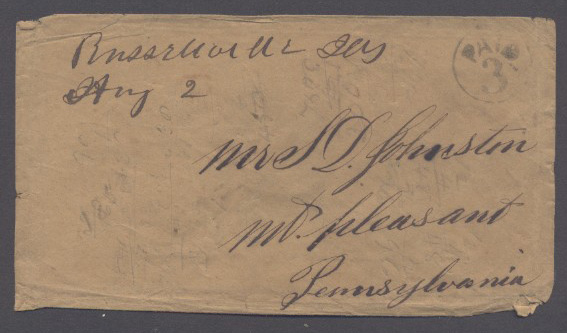 Russellville Ky
Aug 2
PAID
3
Mr S D. Johnston
Mt. Pleasant
Pennsylvania